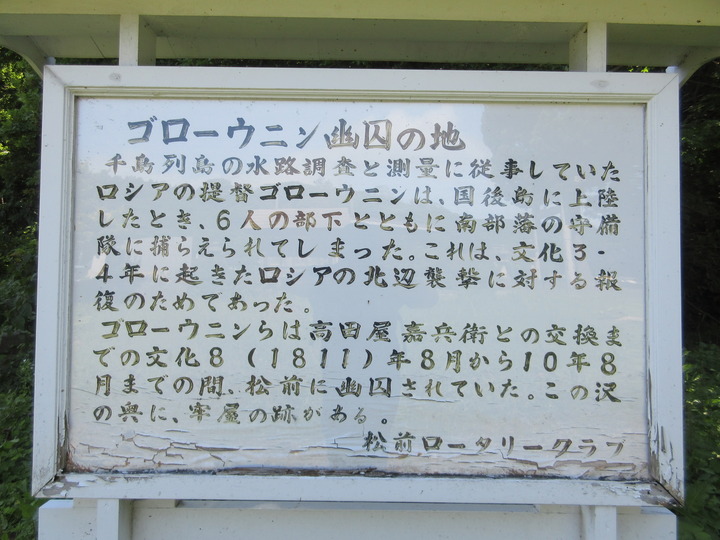 ゴローウニン幽囚の地
千島列島の水路調査と測量に従事していた
ロシアの提督ゴローウニンは、国後島に上陸
したとき、6人の部下とともに南部落の守備
隊に捕らえられてしまった。これは、文化3・
4年に起きたロシアの北辺襲撃に対する報
復のためであった。
ゴローウニンらは高田屋嘉兵衛との交換ま
での文化8(1811)年8月から10年8
月までの間、松前に幽囚されていた。この沢
の奥に、牢屋の跡がある。
松前ロータリークラブ